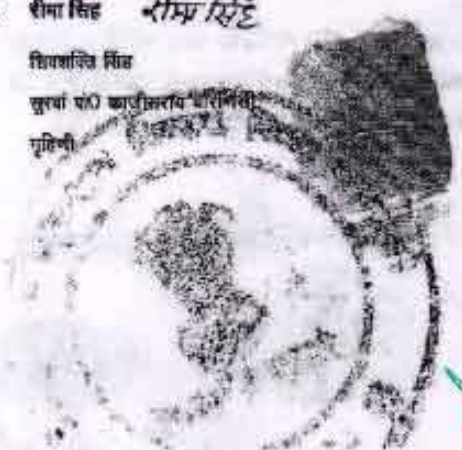 रीमा सिंह रीमा सिंह
शिवशक्ति सिंह
सुरवां पो0 काजीसराय वाराणसी
गृहिणी